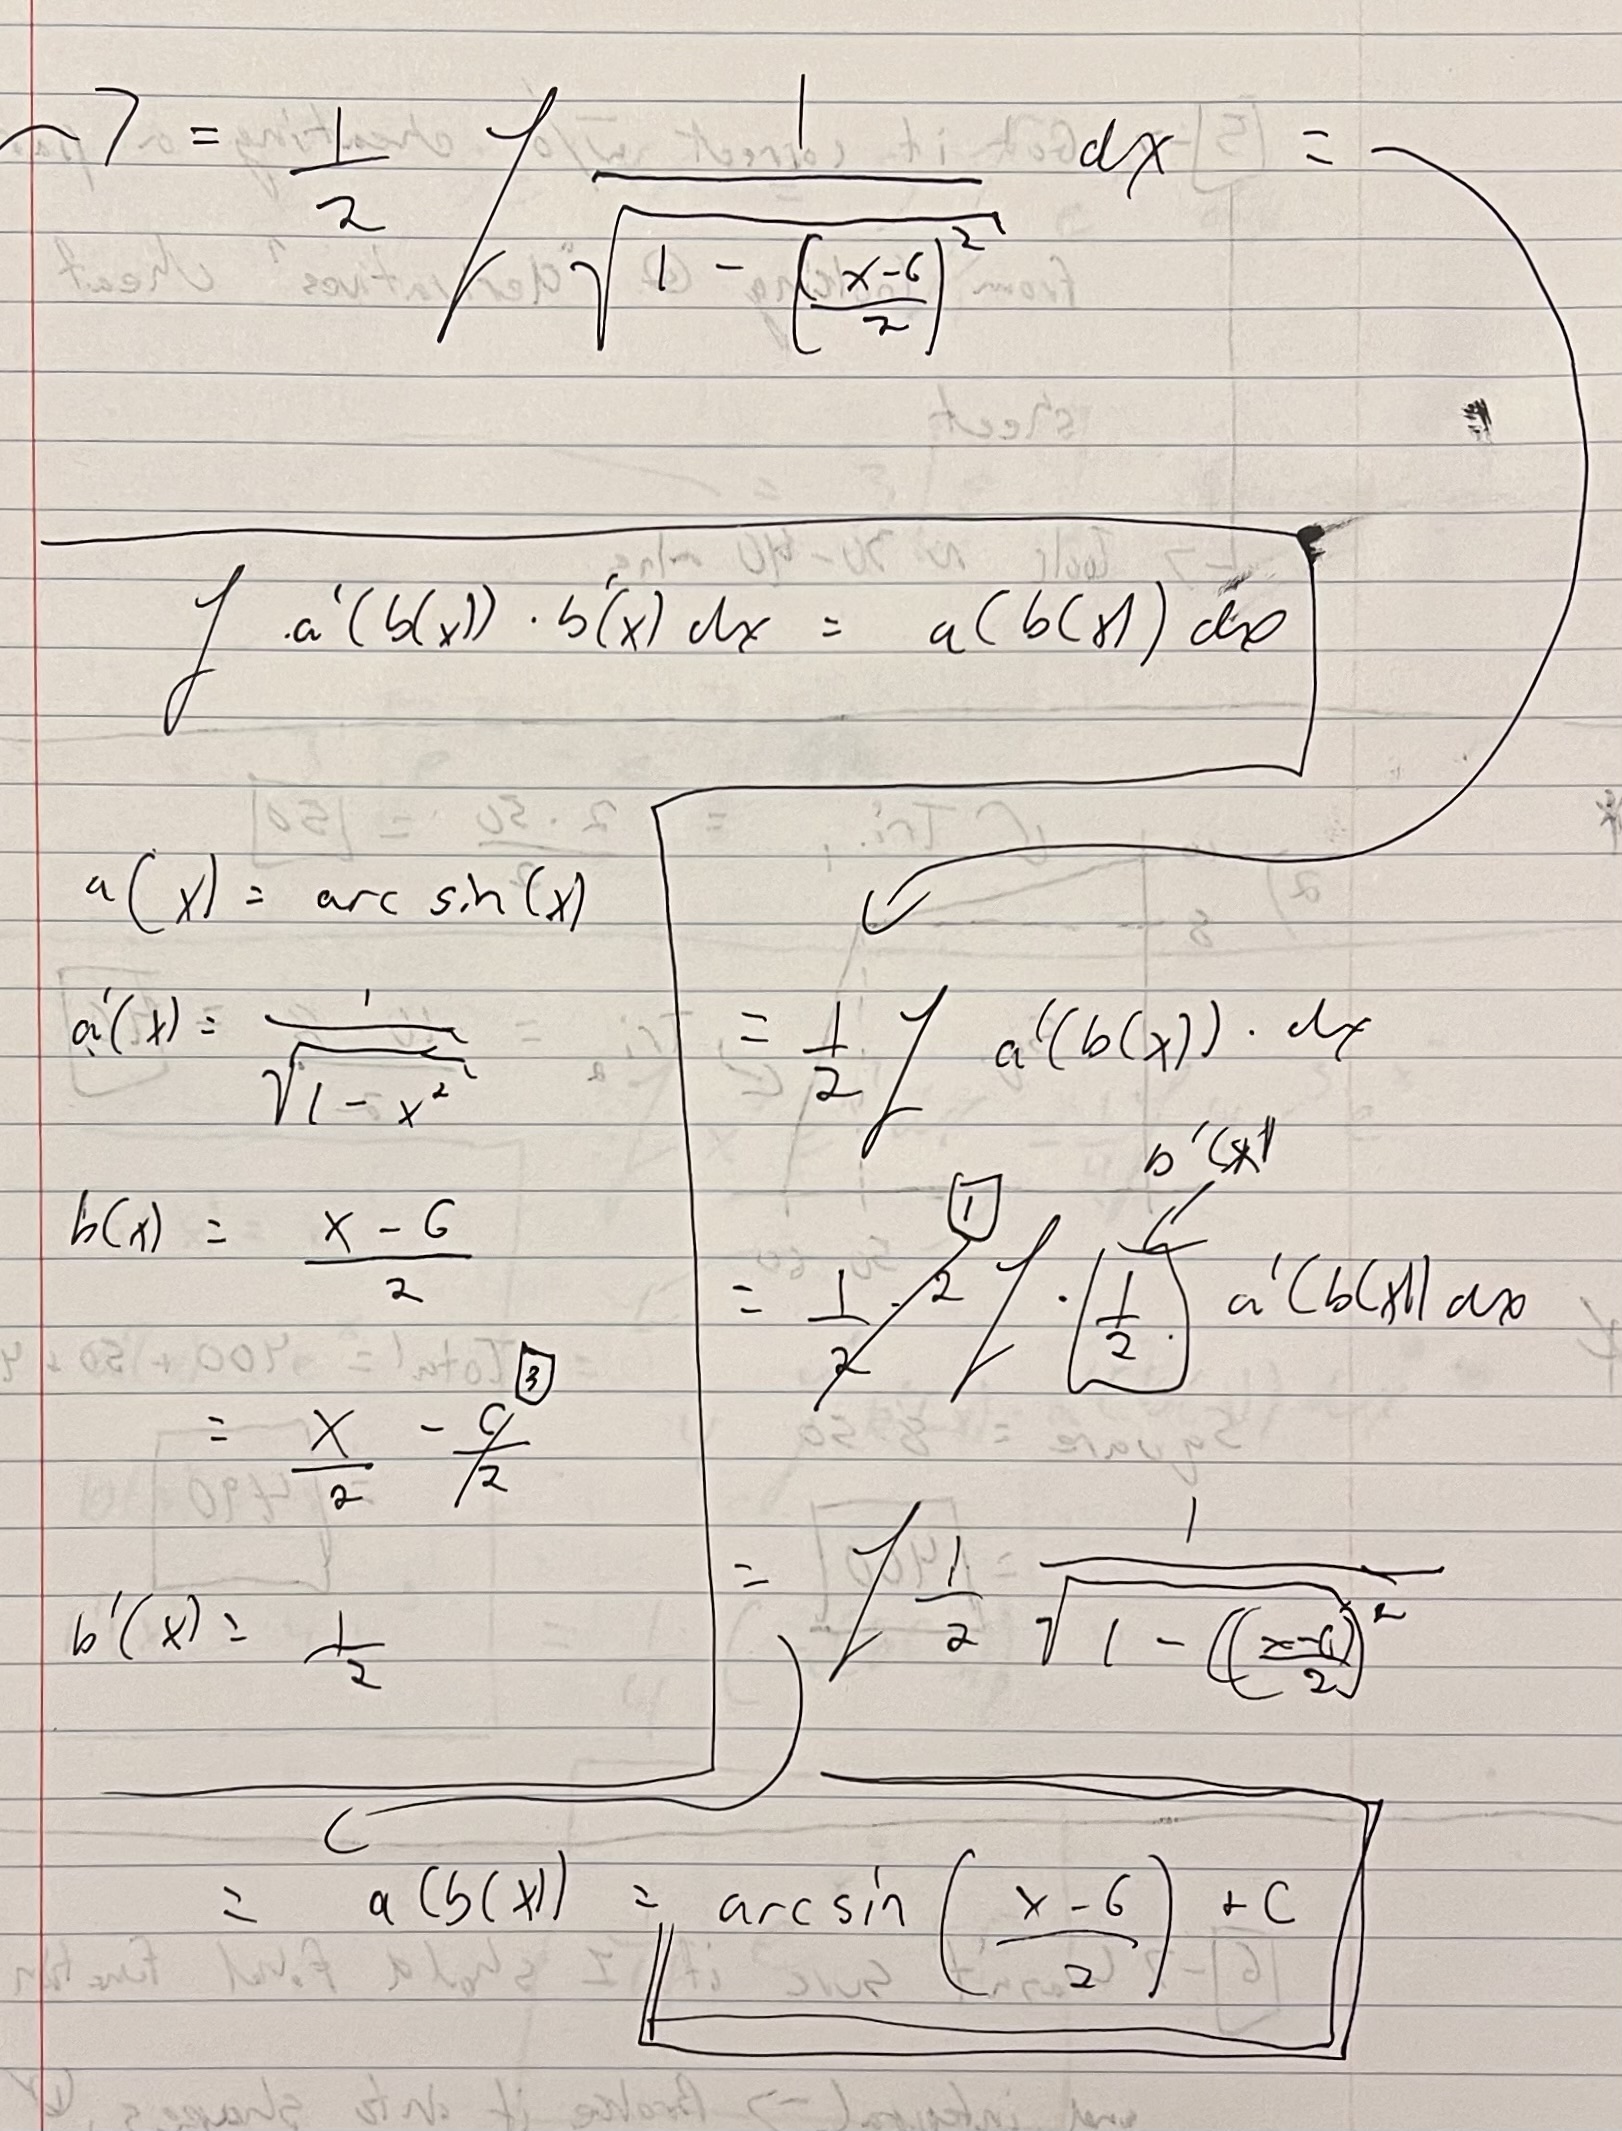 = 1/2 ∫ 1/√(1 - ((x-6)/2)²) dx =
∫ a'(b(x)) · b'(x) dx = a(b(x))
a(x) = arc sin(x)
a'(x) = 1/√(1 - x²)
b(x) = (x - 6)/2
= x/2 - 6/2 3
b'(x) = 1/2
= 1/2 ∫ a'(b(x)) · dx
1 b'(x)
= 1/2 · 2 ∫ · 1/2 · a'(b(x)) dx
= ∫ 1/2 1/√(1 - ((x-6)/2)²)
= a(b(x)) = arcsin((x - 6)/2) + C